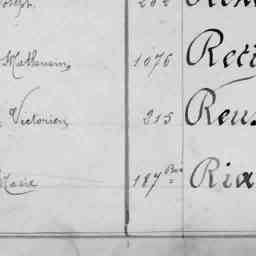 Joseph 202
Mathurin 1076 Reti
Victorien 215 Reus
Marie 187 Bis Ria